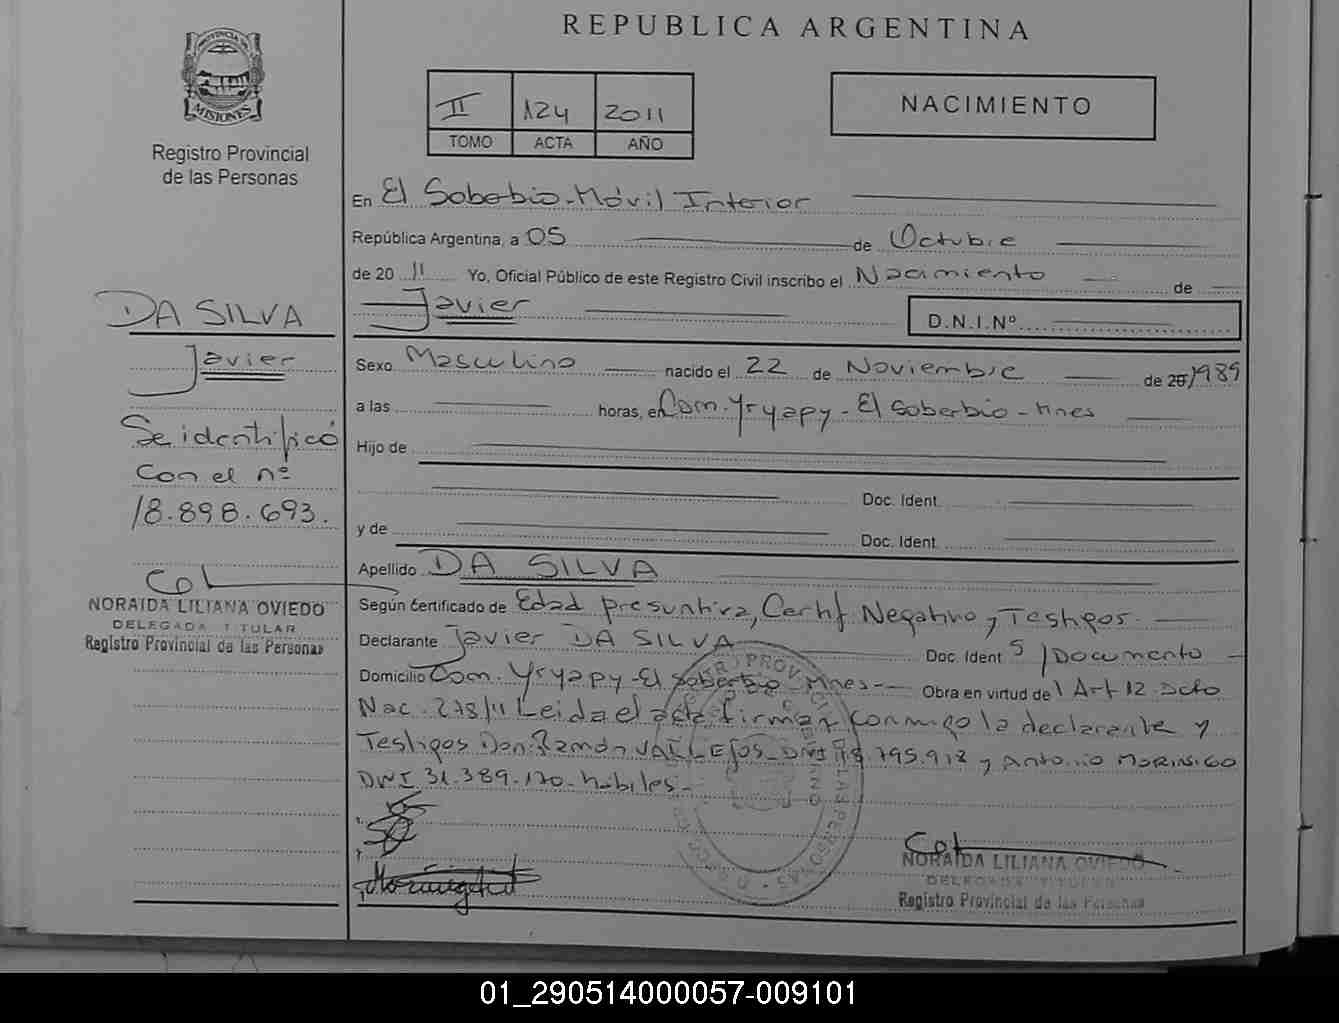 REPUBLICA ARGENTINA
PROVINCIA DE
MISIONES
Registro Provincial
de las Personas
II 124 2011
TOMO ACTA AÑO
NACIMIENTO
En El Soberbio - Móvil Interior
República Argentina, a 05 de Octubre
de 20 11 Yo, Oficial Público de este Registro Civil inscribo el Nacimiento de
Javier
D.N.I.Nº
DA SILVA
Javier
Se identificó
Con el nº
18.898.693.
NORAIDA LILIANA OVIEDO
DELEGADA TITULAR
Registro Provincial de las Personas
Sexo Masculino nacido el 22 de Noviembre de 20 1989
a las horas, en Com. Yryapy - El Soberbio - Mnes
Hijo de
Doc. Ident.
y de Doc. Ident.
Apellido DA SILVA
Según certificado de Edad presuntiva, Certif. Negativo y Testigos.
Declarante Javier DA SILVA Doc. Ident S/Documento
Domicilio Com. Yryapy - El Soberbio - Mnes - Obra en virtud del Art 12 Dcto
Nac. 278/11 Leida el acta firman conmigo la declarante y
Testigos Don Ramón VALLEJOS - DNI 18.795.918 y Antonio MORINIGO
DNI 31.389.170 - hábiles -
NORAIDA LILIANA OVIEDO
DELEGADA TITULAR
Registro Provincial de las Personas
01_290514000057-009101